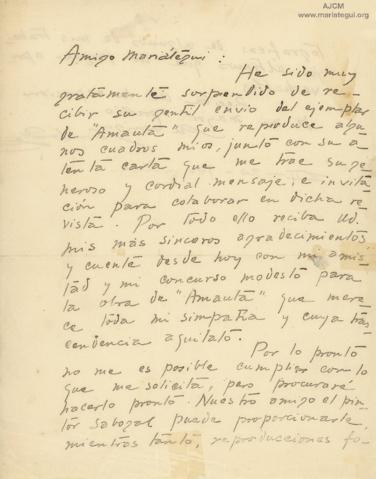 AJCM
www.mariategui.org
Amigo Mariátegui:
He sido muy
gratamente sorprendido de re-
cibir su gentil envio del ejemplar
de "Amauta" que reproduce algu-
nos cuadros mios, junto con su a-
tenta carta que me trae su ge-
neroso y cordial mensaje, e invita-
ción para colaborar en dicha re-
vista. Por todo ello reciba Ud.
mis más sinceros agradecimientos
y cuente desde hoy con mi amis-
tad y mi concurso modesto para
la obra de "Amauta" que mere-
ce toda mi simpatia y cuya tras-
cendencia aquilato.
Por lo pronto
no me es posible cumplir con lo
que me solicita, pero procuraré
hacerlo pronto. Nuestro amigo el pin-
tor Sabogal puede proporcionarle,
mientras tanto, reproducciones fo-